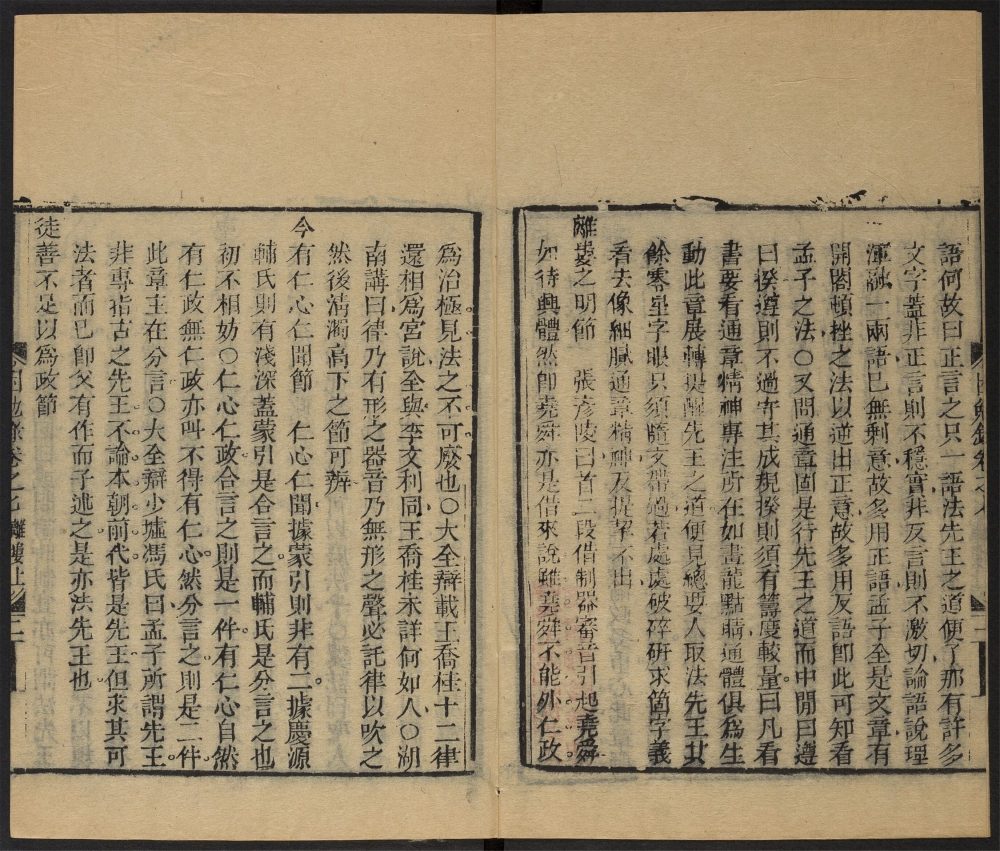 語何故曰正言之只一語法先王之道便了那有許多
文字蓋非正言則不穩實非反言則不激切論語說理
渾融一兩語已無剩意故多用正語孟子全是文章有
開闔頓挫之法以逆出正意故多用反語卽此可知看
孟子之法〇又問通章固是行先王之道而中閒曰遵
曰揆遵則不過守其成規揆則須有籌度較量曰凡看
書要看通章精神專注所在如畫龍點睛通體俱爲生
動此章展轉提醒先王之道便見總要人取法先王其
餘零星字眼只須隨文帶過若處處破碎研求箇字義
看去像細膩通章精神反提挈不出
離婁之明節 張彥陵曰首二段借制器審音引起堯舜
如詩興體然卽堯舜亦是借來說雖堯舜不能外仁政
爲治極見法之不可廢也〇大全辯載王喬桂十二律
還相爲宮說全與李文利同王喬桂未詳何如人〇湖
南講曰律乃有形之器音乃無形之聲必託律以吹之
然後淸濁高下之節可辨
今有仁心仁聞節 仁心仁聞據蒙引則非有二據慶源
輔氏則有淺深蓋蒙引是合言之而輔氏是分言之也
初不相妨〇仁心仁政合言之則是一件有仁心自然
有仁政無仁政亦叫不得有仁心然分言之則是二件
此章主在分言〇大全辯少墟馮氏曰孟子所謂先王
非專指古之先王不論本朝前代皆是先王但求其可
法者而已卽父有作而子述之是亦法先王也
徒善不足以爲政節